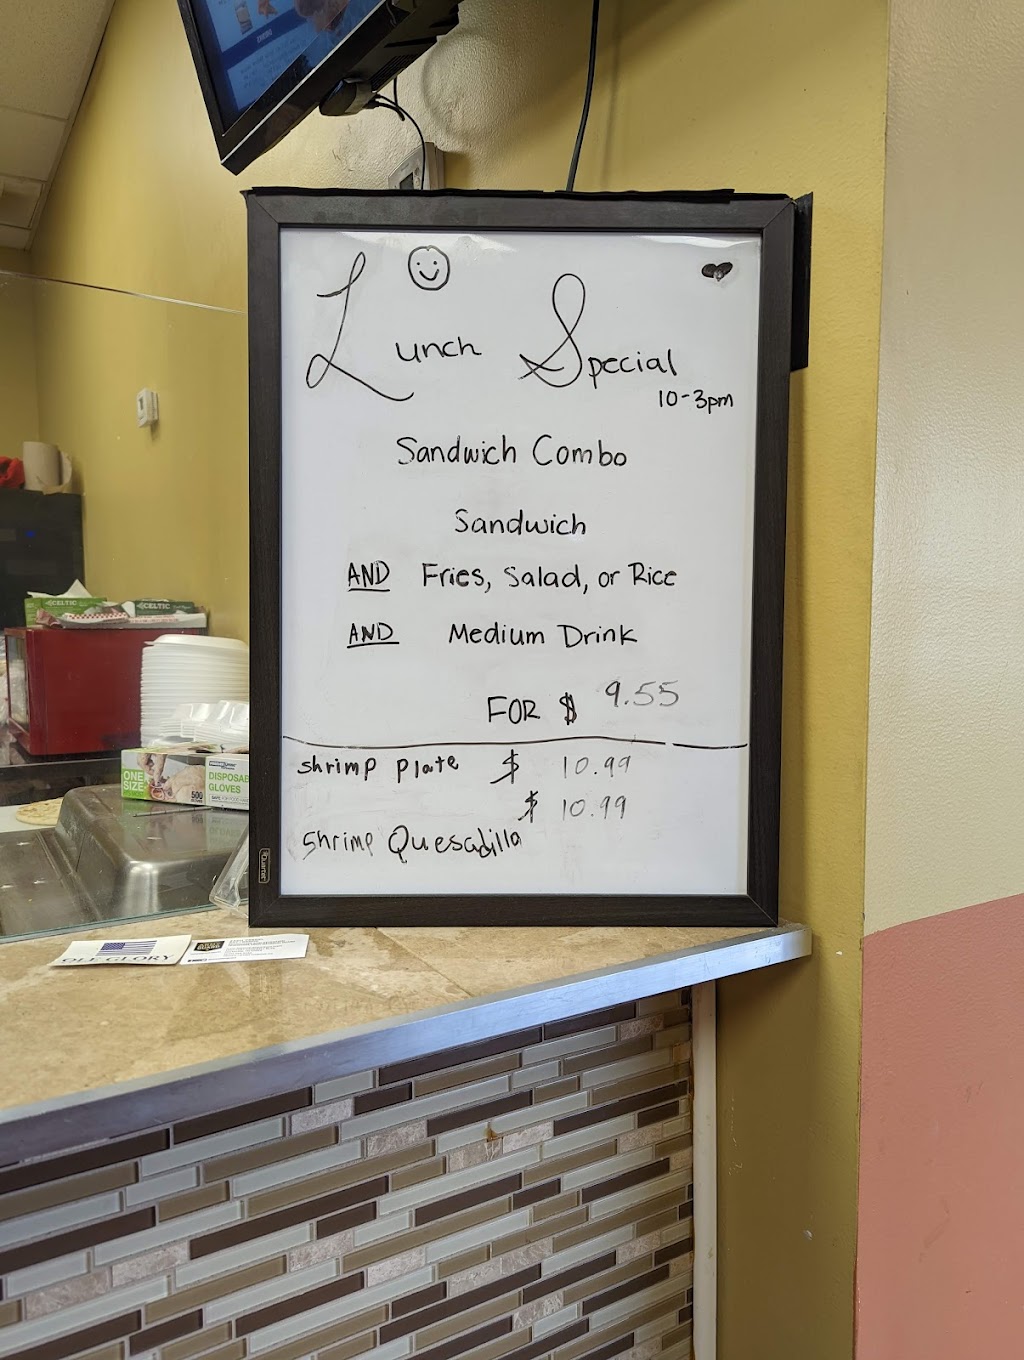 Lunch Special
10-3pm
Sandwich Combo
Sandwich
AND Fries, Salad, or Rice
AND Medium Drink
FOR $ 9.55
shrimp Plate $ 10.99
$ 10.99
Shrimp Quesadilla
Quartet
CELTIC
CELTIC
ONE SIZE
500
DISPOSAB
GLOVES
OLE GLORY